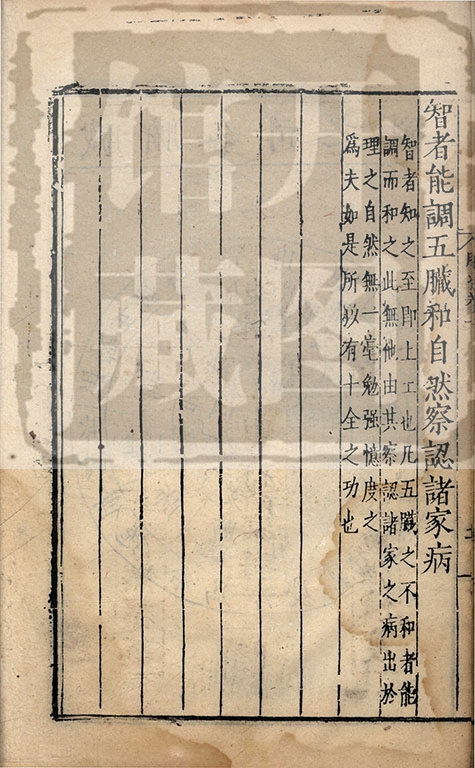 智者能調五臟和自然察認諸家病
智者知之至即上工也凡五臟之不和者能
調而和之此無他由其察認諸家之病出於
理之自然無一毫勉强憶度之
爲夫如是所以有十全之功也